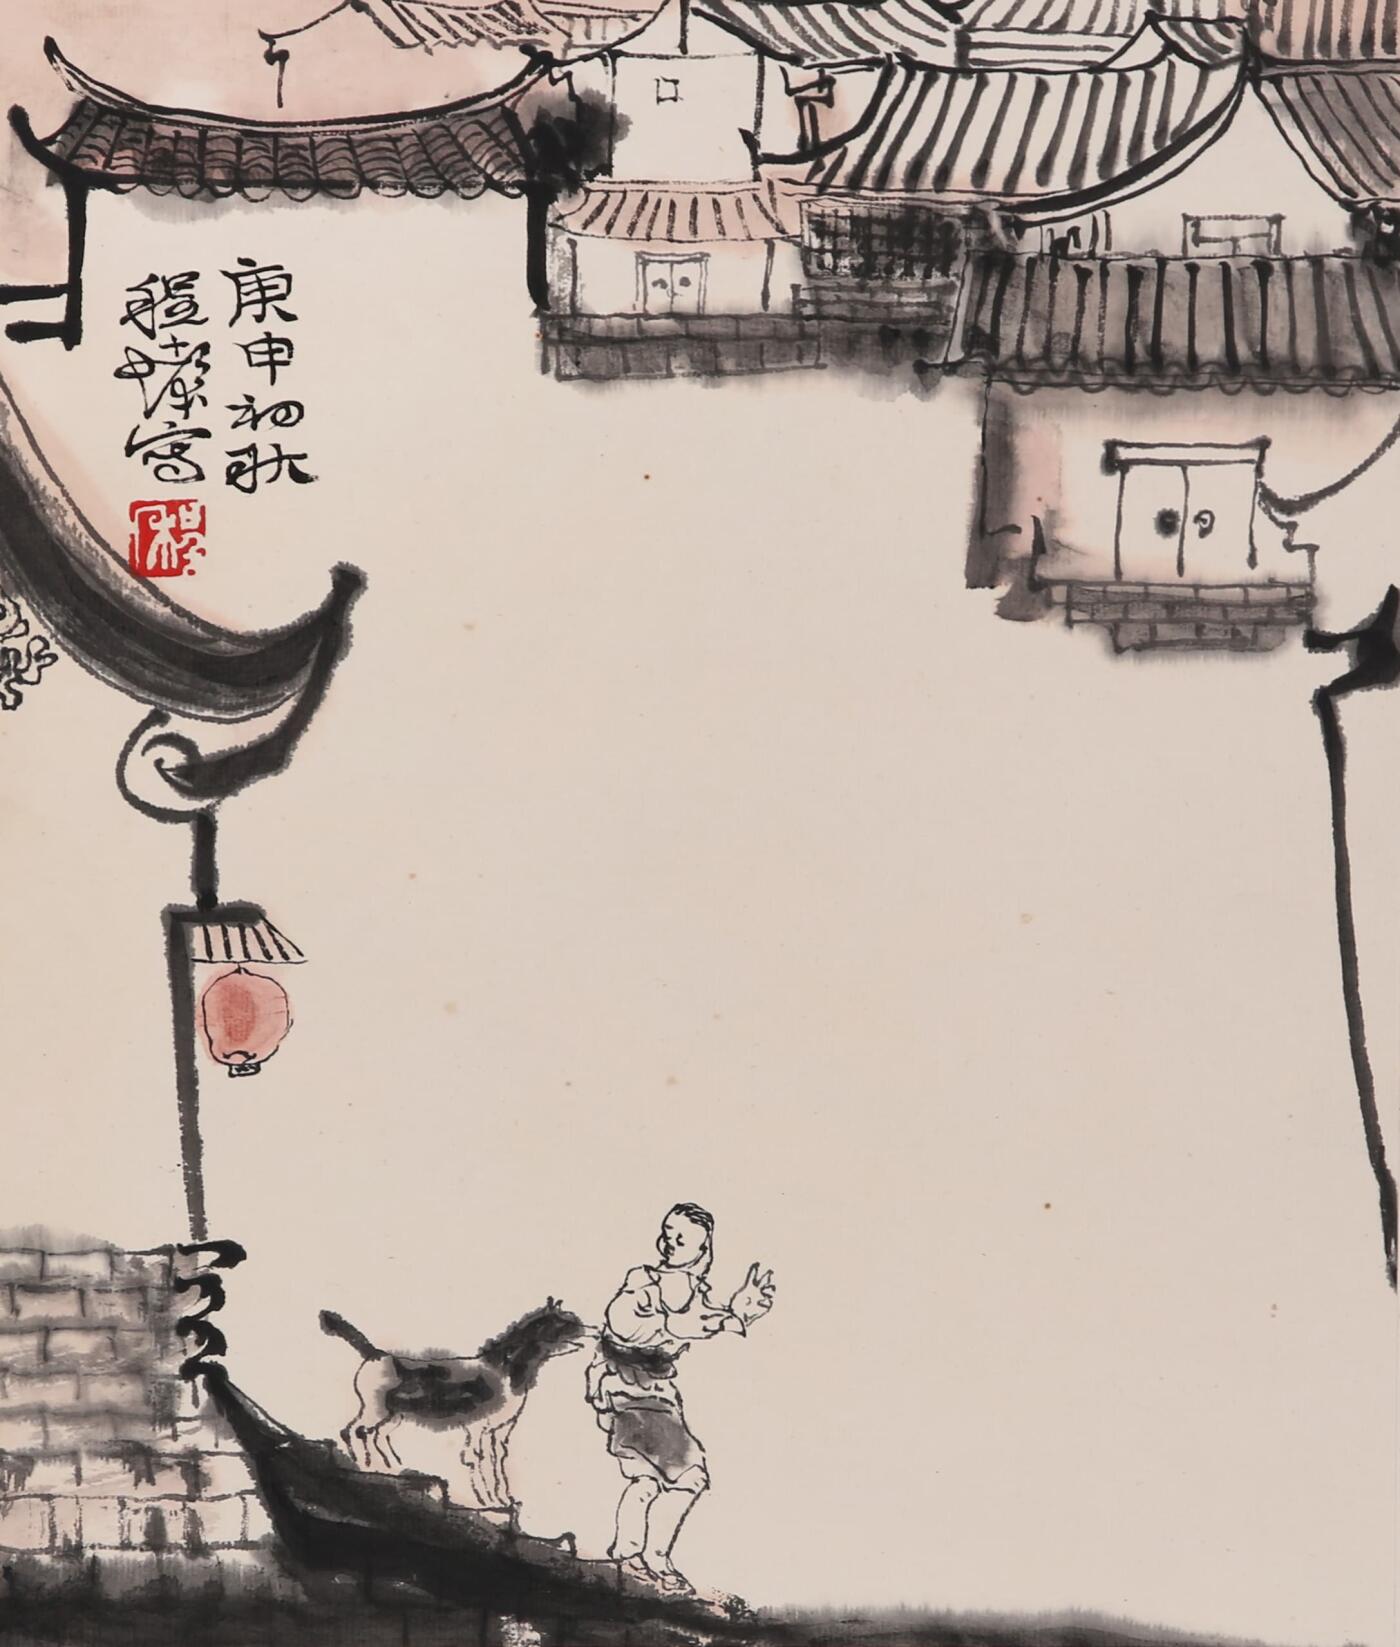 庚申初秋
程十髮寫
程